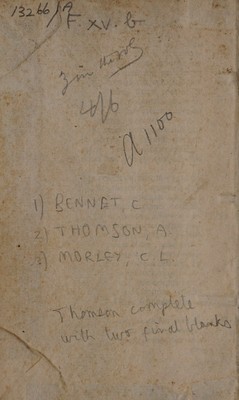 13266/A
F. XV. b
4/6
a 1100
1) BENNET, C
2) THOMSON, A
3) MORLEY, C L.
Thomson complete
with two final blanks